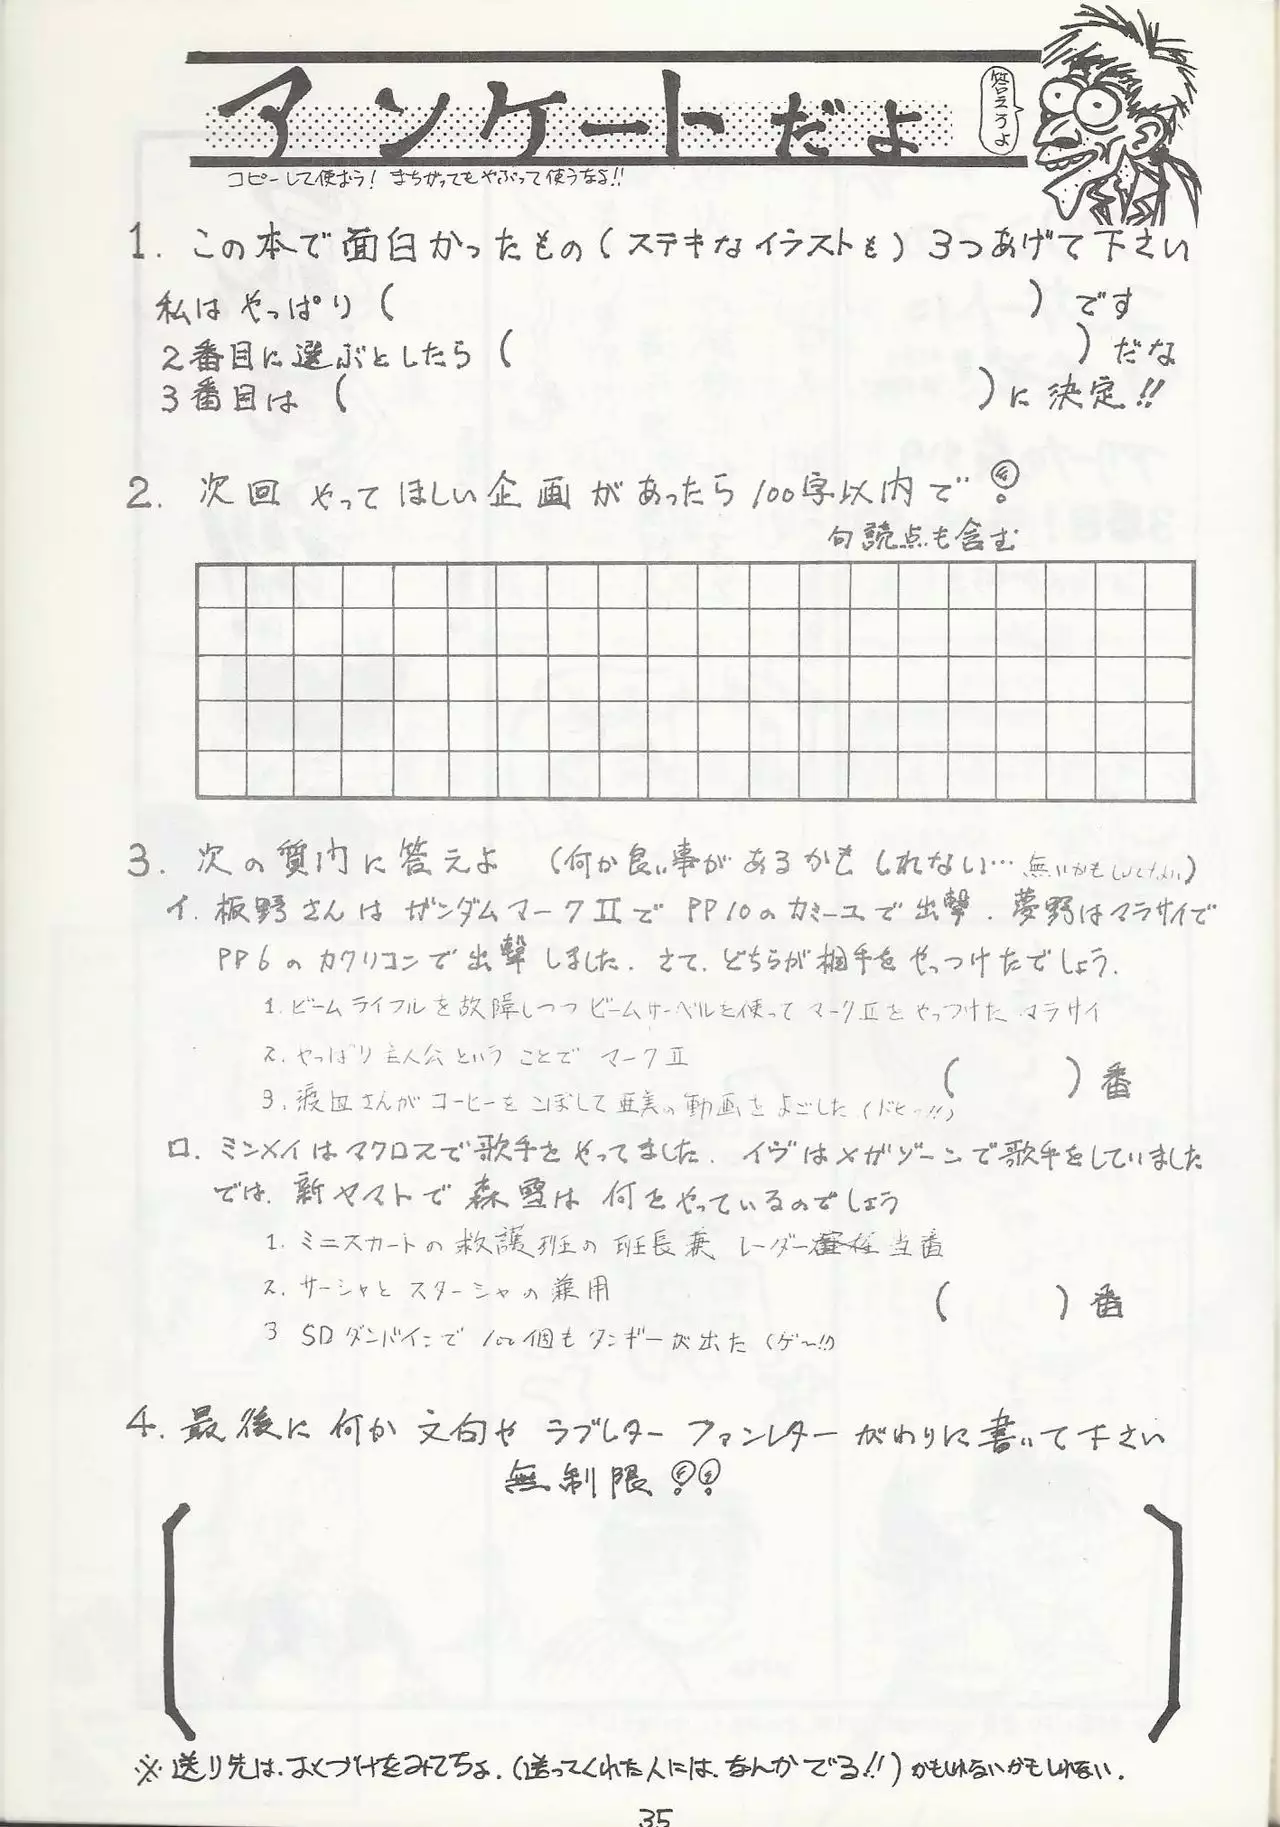 アンケートだよ
答えろよ
コピーして使おう! まちがってもやぶって使うなよ!!
1. この本で面白かったもの(ステキなイラストも)3つあげて下さい
私は やっぱり ( ) です
2番目に選ぶとしたら ( ) だな
3番目は ( )に 決定!!
2. 次回 やって ほしい 企画 が あったら 100字以内で!
句読点も含む
3. 次の質内に答えよ (何か良い事があるかも しれない…無いかもしれない)
イ. 板野さんは ガンダムマークⅡで PP10のカミーユで出撃. 夢野はマラサイで
PP6のカクリコンで出撃しました. さて、どちらが相手をやっつけたでしょう.
1. ビームライフルを故障しつつ ビームサーベルを使って マークⅡをやっつけた マラサイ
2. やっぱり 主人公ということで マークⅡ
( ) 番
3. 渡皿さんが コーヒーを こぼして 亜美の動画を よごした(ドヒっ!!)
ロ. ミンメイはマクロスで歌手をやってました. イヴはメガゾーンで歌手をしていました
では、新ヤマトで 森雪は 何をやっているのでしょう
1. ミニスカートの救護班の班長兼 レーダー 当番
2. サーシャと スターシャの兼用
( ) 番
3 SDダンバインで 100個もタンギーが出た(ゲ〜!!)
4. 最後に 何か 文句や ラブレター ファンレター がわりに書いて下さい
無制限!!
※送り先は、おくづけをみてちょ.(送ってくれた人には、なんかでる!!)かもしれないかもしれない.
35